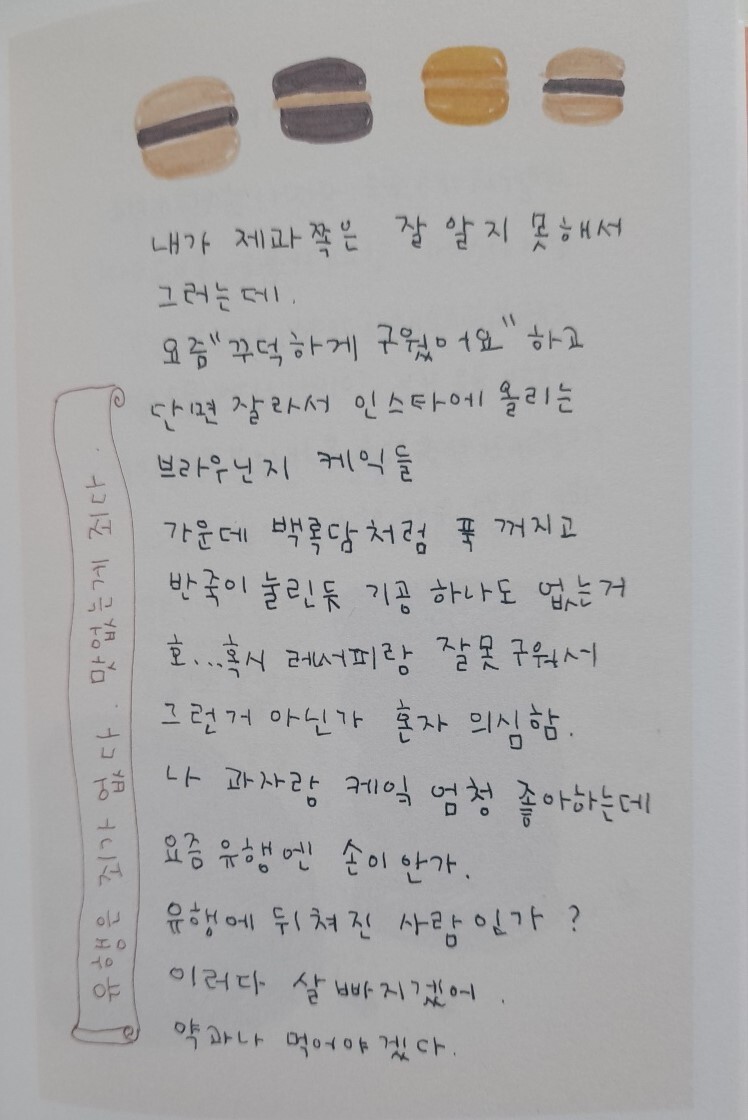 내가 제과쪽은 잘 알지 못해서
그러는데.
요즘 "꾸덕하게 구웠어요" 하고
단면 잘라서 인스타에 올리는
브라우닌지 케익들
가운데 백록담처럼 푹 꺼지고
반죽이 눌린듯 기공 하나도 없는거
호...혹시 레서피랑 잘못 구워서
그런거 아닌가 혼자 의심함.
나 과자랑 케익 엄청 좋아하는데
요즘 유행엔 손이 안가.
유행에 뒤쳐진 사람인가?
이러다 살 빠지겠어.
약과나 먹어야겠다.